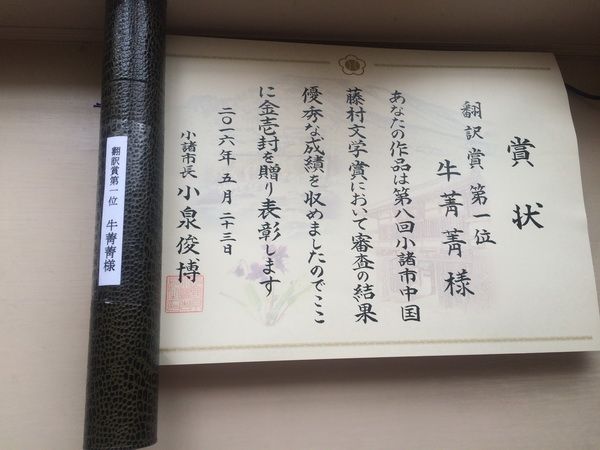 賞状
翻訳賞 第一位
牛菁菁様
あなたの作品は第八回小諸市中国
藤村文学賞において審査の結果
優秀な成績を収めましたのでここ
に金壱封を贈り表彰します
二〇一六年 五月 二十三日
小諸市長 小泉俊博
翻訳賞第一位 牛菁菁様